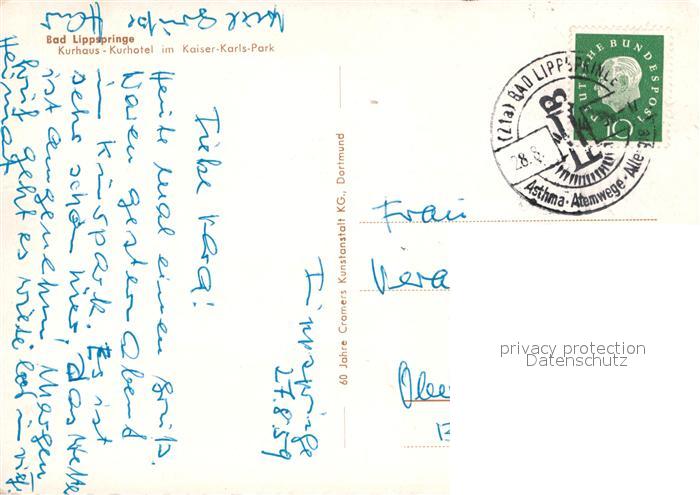 Bad Lippspringe
Kurhaus - Kurhotel im Kaiser-Karls-Park
Lippspringe
27.8.59
Liebe Vera!
Heute mal einen Gruß.
Waren gestern Abend
im Kurpark. Es ist
sehr schön hier, das Wetter
ist angenehm, Morgen
früh geht es wieder in
Heimat
Viele Grüße
60 Jahre Cramers Kunstanstalt KG., Dortmund
DEUTSCHE BUNDESPOST
10
(21a) BAD LIPPSPRINGE
28.8.
Asthma·Atemwege·Alle
Frau
Vera
privacy protection
Datenschutz